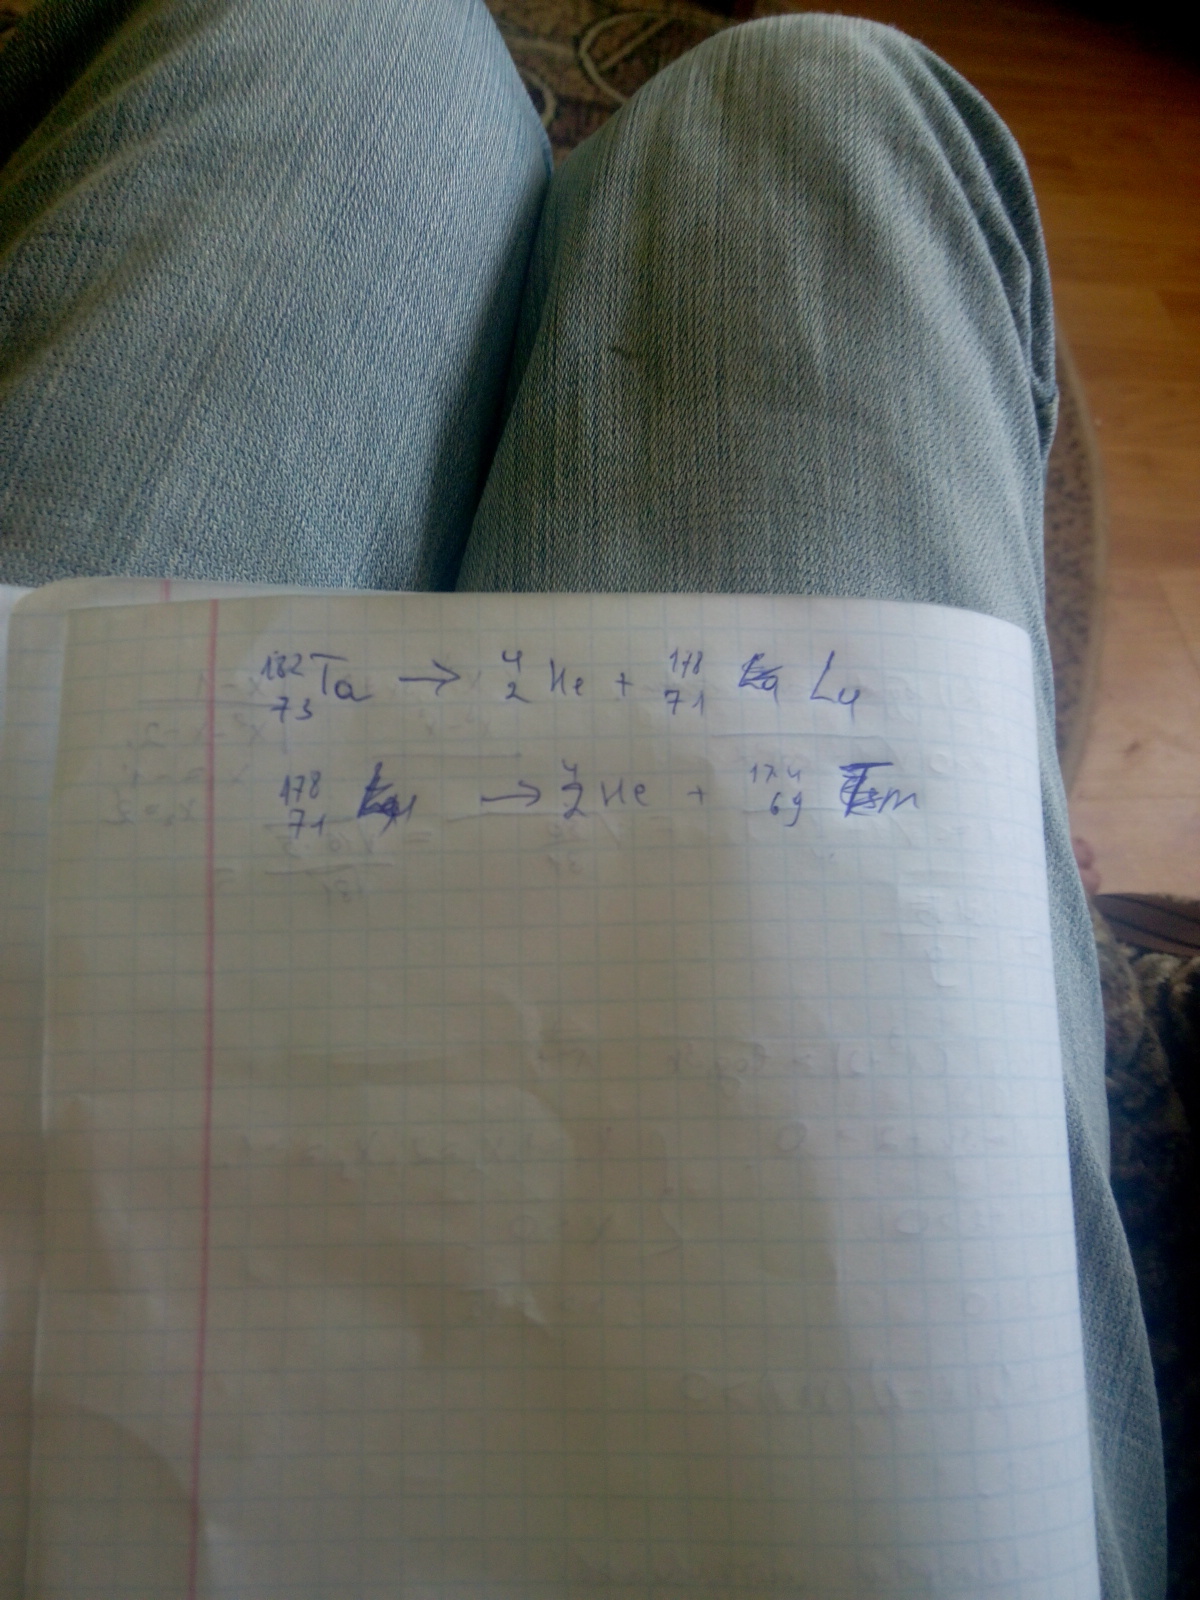 ¹⁸²₇₃Ta → ⁴₂He + ¹⁷⁸₇₁ Lu
¹⁷⁸₇₁ → ⁴₂He + ¹⁷⁴₆₉